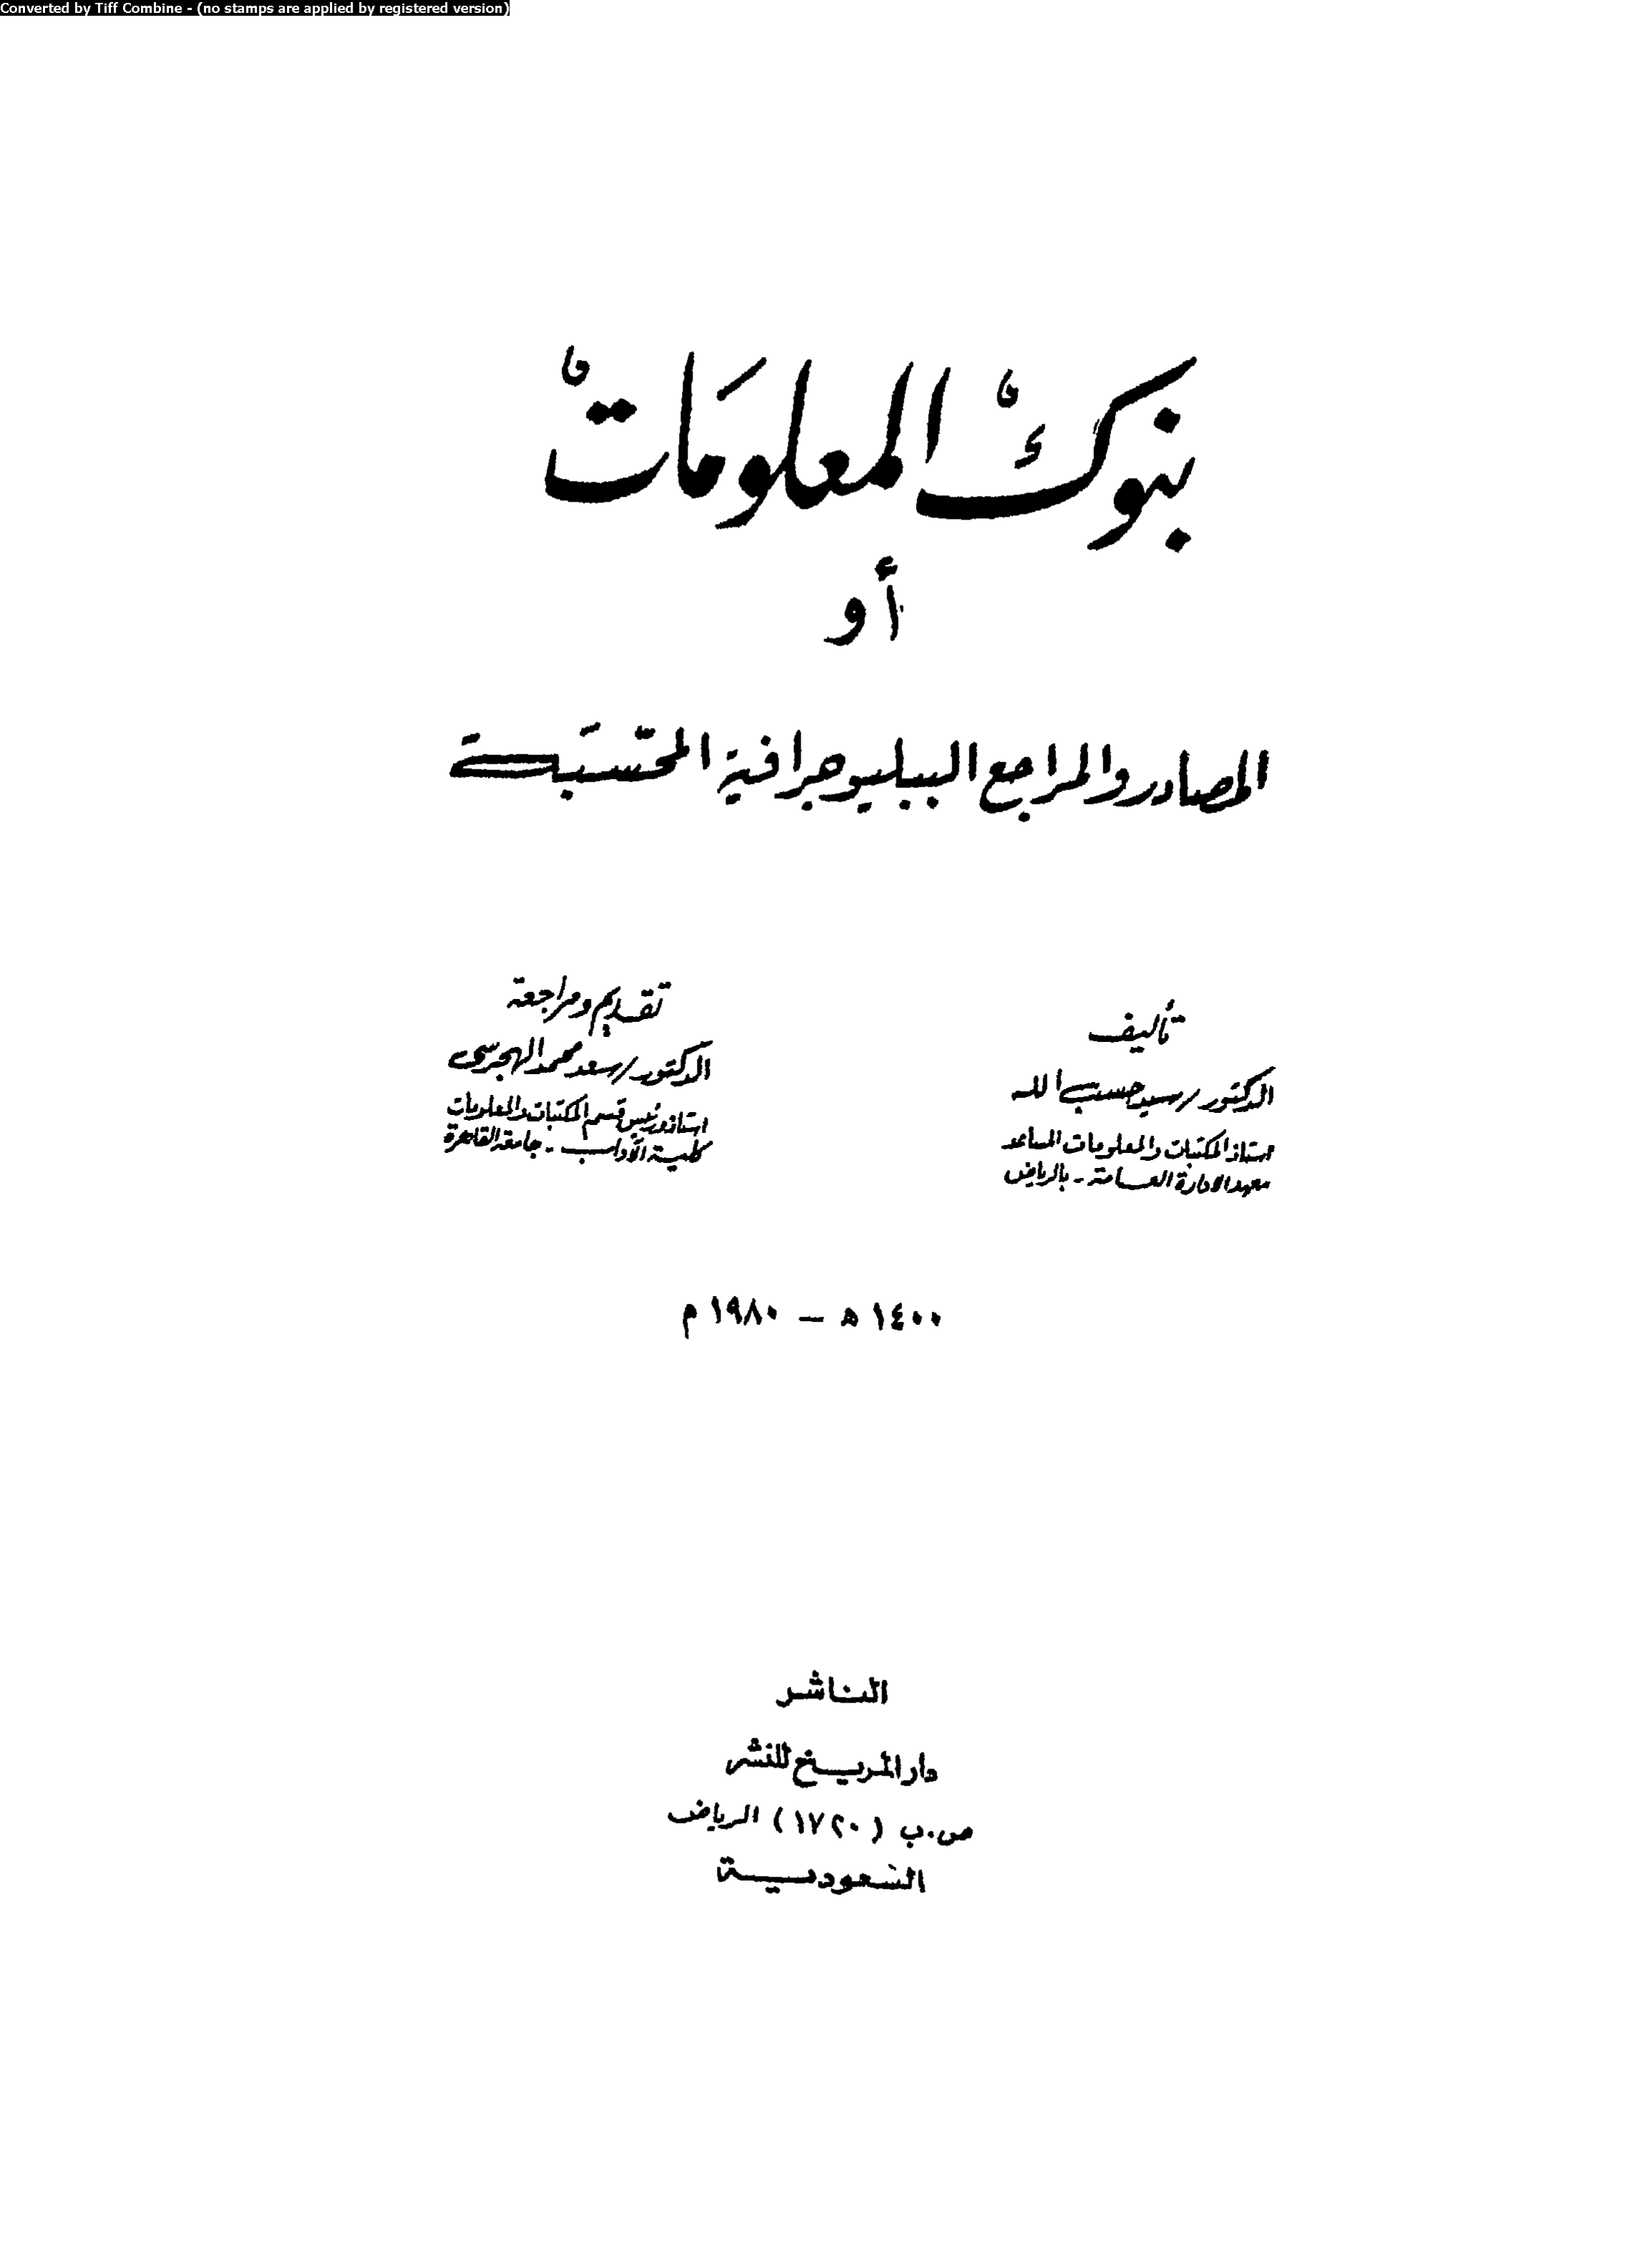 Converted by Tiff Combine - (no stamps are applied by registered version)
بنوك المعلومات
أو
المصادر والمراجع الببليوجرافية المحسّبة
تأليف
الدكتور/سيد حسب الله
استاذ المكتبات والمعلومات المساعد
معهد الادارة العامة - بالرياض
تقديم ومراجعة
الدكتور/سعد محمد الهجرسى
استاذ ورئيس قسم المكتبات والمعلومات
كلية الآداب - جامعة القاهرة
١٤٠٠ هـ – ١٩٨٠ م
الناشر
دار المريخ للنشر
ص.ب (١٧٢٠) الرياض
السعودية